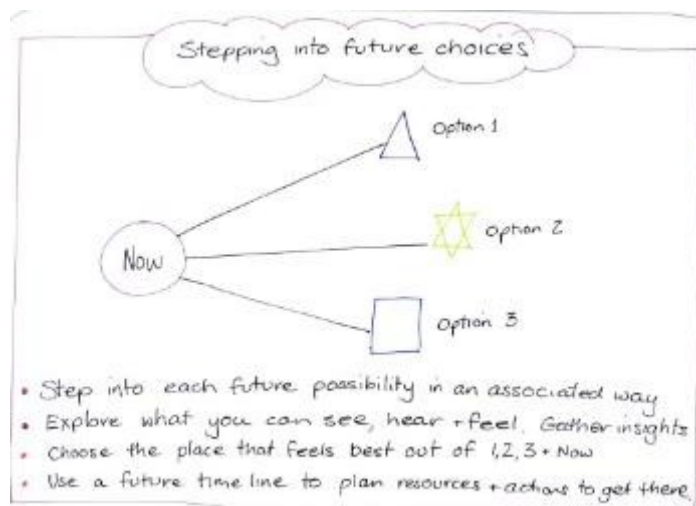 Stepping into future choices
Option 1
Now
Option 2
Option 3
• Step into each future possibility in an associated way
• Explore what you can see, hear + feel. Gather insights
• Choose the place that feels best out of 1,2,3 + Now
• Use a future time line to plan resources + actions to get there